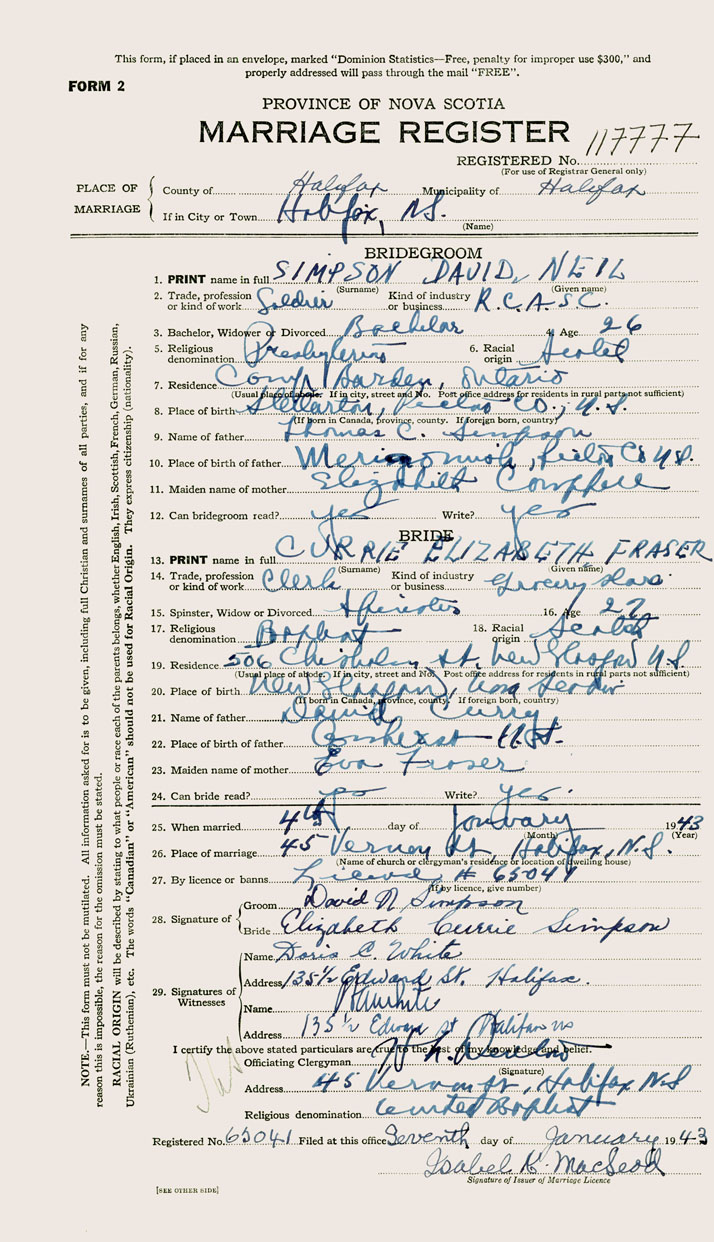 This form, if placed in an envelope, marked "Dominion Statistics—Free, penalty for improper use $300," and
properly addressed will pass through the mail "FREE".
FORM 2
PROVINCE OF NOVA SCOTIA
MARRIAGE REGISTER
117777
REGISTERED No.
(For use of Registrar General only)
PLACE OF MARRIAGE
County of Halifax Municipality of Halifax
If in City or Town Halifax, N.S.
(Name)
BRIDEGROOM
1. PRINT name in full SIMPSON DAVID, NEIL
(Surname) (Given name)
2. Trade, profession or kind of work Soldier Kind of industry or business R.C.A.S.C.
3. Bachelor, Widower or Divorced Bachelor 4. Age 26
5. Religious denomination Presbyterian 6. Racial origin Scotch
7. Residence Camp Borden, Ontario
(Usual place of abode. If in city, street and No. Post office address for residents in rural parts not sufficient)
8. Place of birth Stellarton, Pictou Co., N.S.
(If born in Canada, province, county. If foreign born, country)
9. Name of father Thomas C. Simpson
10. Place of birth of father Merigomish, Pictou Co N.S.
11. Maiden name of mother Elizabeth Campbell
12. Can bridegroom read? yes Write? yes
BRIDE
13. PRINT name in full CURRIE ELIZABETH FRASER
(Surname) (Given name)
14. Trade, profession or kind of work Clerk Kind of industry or business Grocery store
15. Spinster, Widow or Divorced Spinster 16. Age 27
17. Religious denomination Baptist 18. Racial origin Scotch
19. Residence 506 Chisholm St. New Glasgow N.S
(Usual place of abode. If in city, street and No. Post office address for residents in rural parts not sufficient)
20. Place of birth New Glasgow, Nova Scotia
(If born in Canada, province, county. If foreign born, country)
21. Name of father David Curry
22. Place of birth of father Amherst N.S.
23. Maiden name of mother Eva Fraser
24. Can bride read? yes Write? yes.
25. When married 4th day of January 1943
(Month) (Year)
26. Place of marriage 45 Vernon St, Halifax, N.S.
(Name of church or clergyman's residence or location of dwelling house)
27. By licence or banns License # 65041
(If by licence, give number)
28. Signature of
Groom David N Simpson
Bride Elizabeth Currie Simpson
29. Signatures of Witnesses
Name Doris C. White
Address 135½ Edward St. Halifax.
Name
Address 135½ Edward St Halifax NS
I certify the above stated particulars are true to the best of my knowledge and belief.
Officiating Clergyman
(Signature)
Address 45 Vernon St, Halifax N.S
Religious denomination United Baptist
Registered No. 65041 Filed at this office Seventh day of January 1943
Isabel K. MacLeod
Signature of Issuer of Marriage Licence
[SEE OTHER SIDE]
NOTE.—This form must not be mutilated. All information asked for is to be given, including full Christian and surnames of all parties, and if for any
reason this is impossible, the reason for the omission must be stated.
RACIAL ORIGIN will be described by stating to what people or race each of the parents belongs, whether English, Irish, Scottish, French, German, Russian,
Ukrainian (Ruthenian), etc. The words "Canadian" or "American" should not be used for Racial Origin. They express citizenship (nationality).